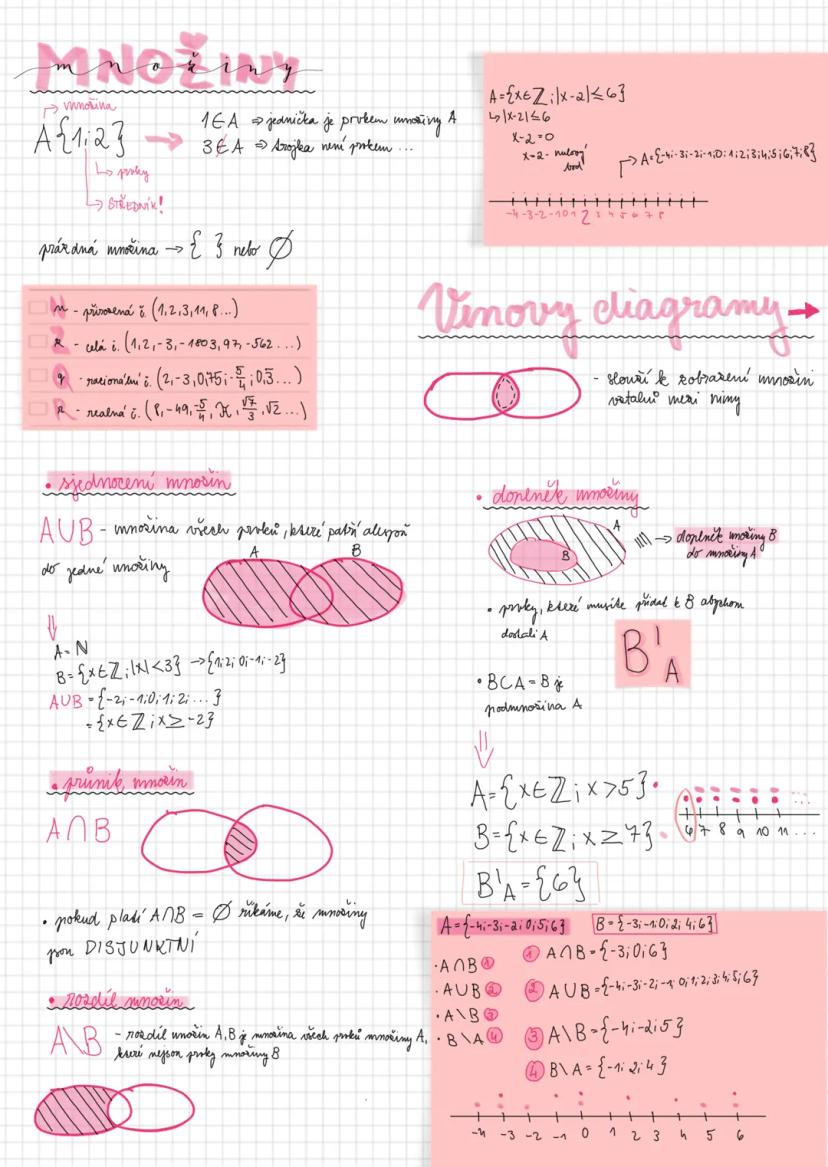 MNOŽINY
množiny
množina
A{1;2}
1∈A ⇒ jednička je prvkem množiny A
3∉A ⇒ trojka není prvkem ...
prvky
STŘEDNÍK!
prázdná množina → { } nebo ∅
N n - přirozená č. (1,2,3,11,8...)
Z z - celá č. (1,2,-3,-1803,97,-562...)
Q q - racionální č. (2,-3,0,75;-5/4;0,3̅...)
R r - realná č. (8,-49,-5/4,π,√7/3,√2...)
A={x∈Z;|x-2|≤6}
↳|x-2|≤6
x-2=0
x=2- nulový
bod
→A={-4;-3;-2;-1;0;1;2;3;4;5;6;7;8}
-4 -3 -2 -1 0 1 2 3 4 5 6 7 8
Venovy diagramy →
- slouží k zobrazení množin
vztahů mezi nimi
• sjednocení množin
A∪B - množina všech prvků, které patří alespoň
do jedné množiny
A B
A=N
B={x∈Z;|x|<3} →{1;2;0;-1;-2}
A∪B={-2;-1;0;1;2;...}
={x∈Z;x≥-2}
• průnik množin
A∩B
• pokud platí A∩B=∅ říkáme, že množiny
jsou DISJUNKTNÍ
• rozdíl množin
A\B - rozdíl množin A,B je množina všech prvků množiny A,
které nejsou prvky množiny B
• doplněk množiny
A
B
→ doplněk množiny B
do množiny A
• prvky, které musíte přidat k B abychom
dostali A
B'A
• B⊂A = B je
podmnožina A
A={x∈Z;x>5}
B={x∈Z;x≥7}
6 7 8 9 10 11 ...
B'A={6}
A={-4;-3;-2;0;5;6} B={-3;-1;0;2;4;6}
• A∩B 1
• A∪B 2
• A\B 3
• B\A 4
1 A∩B={-3;0;6}
2 A∪B={-4;-3;-2;-1;0;1;2;3;4;5;6}
3 A\B={-4;-2;5}
4 B\A={-1;2;4}
-4 -3 -2 -1 0 1 2 3 4 5 6